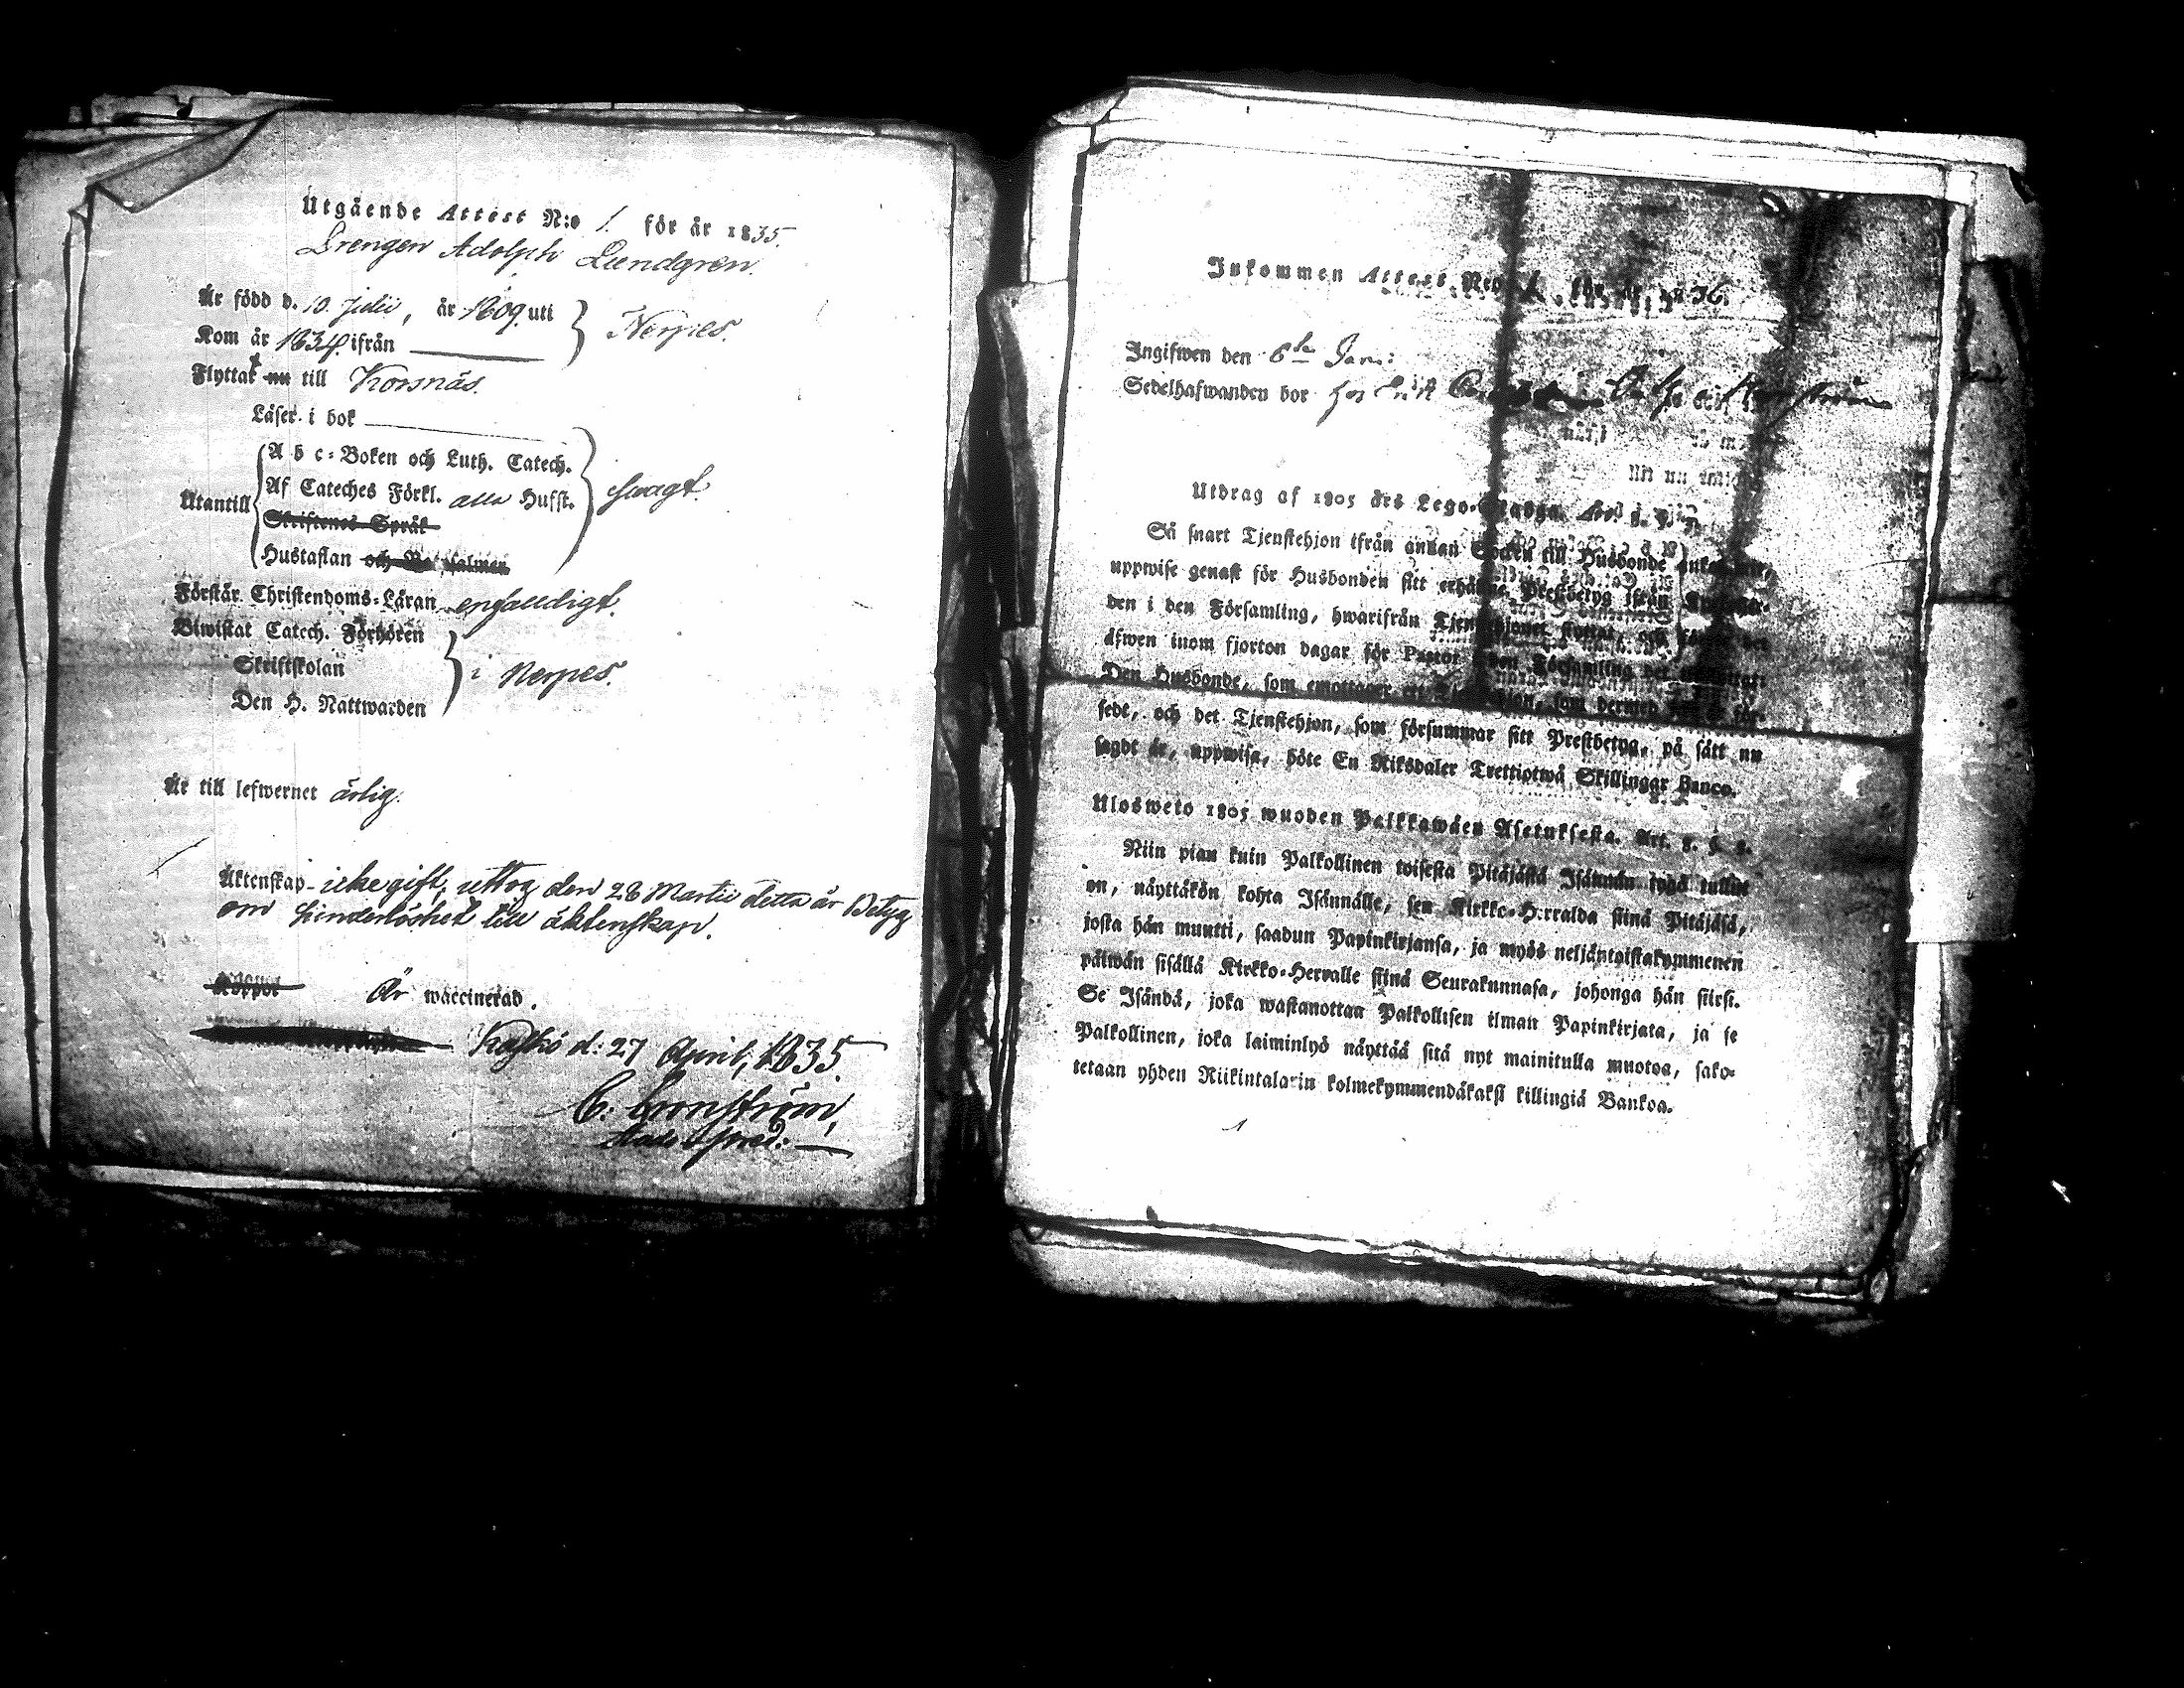 Utgående Attest N:o 1. för år 1835.
Drengen Adolph Lundgren.
Är född d. 10. Julii, år 1809. uti
Kom år 1834. ifrån
Nerpes.
Flyttat nu till Korsnäs.
Läser i bok
A b c-Boken och Luth. Catech.
Utantill Af Cateches Förkl. alla Husst. swagt.
Skriftenes Språk
Hustaflan och
Förstår Christendoms-Läran enfaldigt.
Biwistat Catech. Förhören
Skriftskolan i Nerpes.
Den H. Nattwarden
Är till lefwernet ärlig.
Äktenskap- icke gift, uttog den 28 Martii detta år Betyg
om hinderlöshet till äktenskap.
Koppor Är waccinerad.
Kaskö d: 27 April, 1835.
C: Cronström,
Inkommen Attest N:o 1 för år 1836.
Ingifwen den 6te Jan:
Sedelhafwanden bor hos Erik
Utdrag af 1805 års Lego-Stadga. Art.
Så snart Tjenstehjon ifrån annan Socken till Husbonde
uppwise genast för Husbonden sitt Prestbetyg ifrån
den i den Församling, hwarifrån Tjenstehjonet flyttat, och
äfwen inom fjorton dagar för Pastor Församling det
Den Husbonde, som emottager ett som dermed
sedt, och det Tjenstehjon, som försummar sitt Prestbetyg, på sätt nu
sagdt är, uppwisa, böte En Riksdaler Trettiotwå Skillingar Banco.
Ulosweto 1805 wuoden Palkkawäen Asetuksesta. Art. 8. §
Niin pian kuin Palkollinen toisesta Pitäjästä Isännän tygö tullut
on, näyttäkön kohta Isännälle, sen Kirkko-Herralda siinä Pitäjäsä,
josta hän muutti, saadun Papinkirjansa, ja myös neljäntoistakymmenen
päiwän sisällä Kirkko-Herralle siinä Seurakunnasa, johonga hän siirsi.
Se Isändä, joka wastanottaa Palkollisen ilman Papinkirjata, ja se
Palkollinen, joka laiminlyö näyttää sitä nyt mainitulla muotoa, sako-
tetaan yhden Riikintalarin kolmekymmendäkaksi killingiä Bankoa.